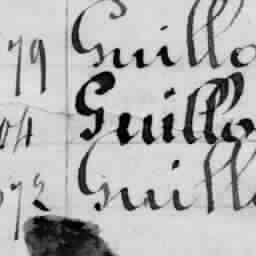 79 Guillo
04 Guillo
72 Guill